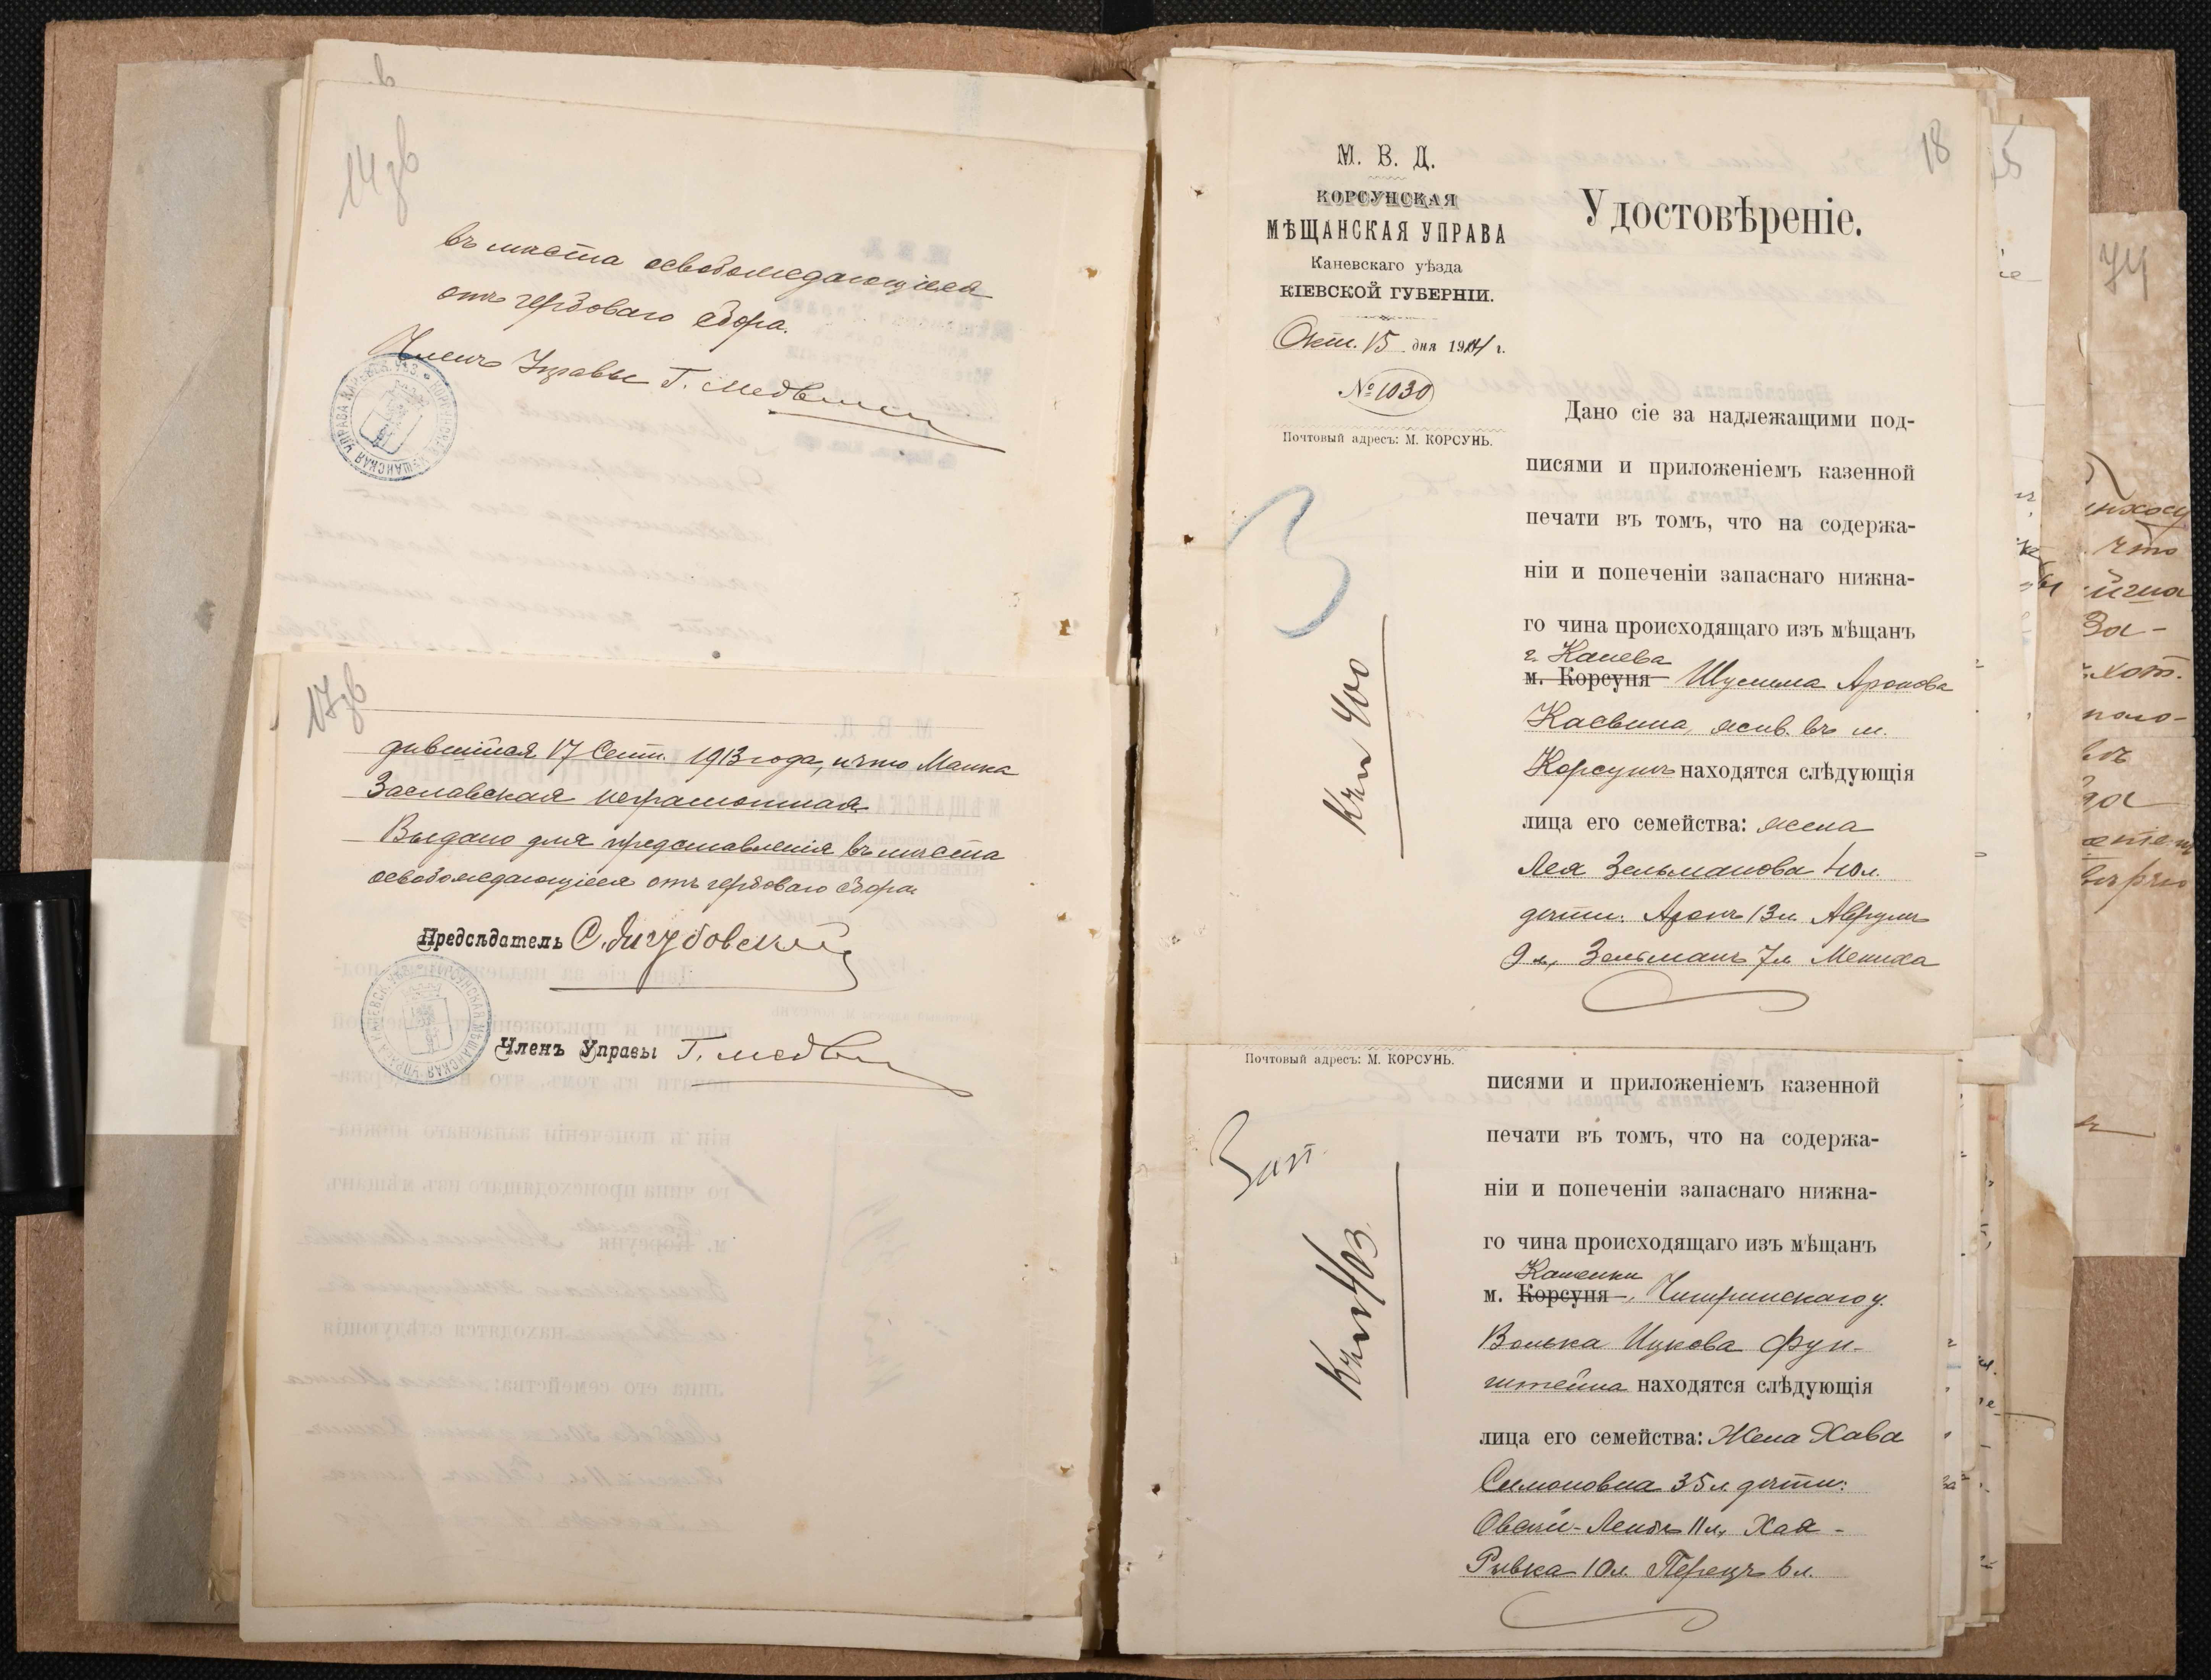 14 об
въ мѣста освобождающіеся
отъ гербоваго сбора.
Членъ Управы Г. Медвин
17 об
дившаяся 17 Сент. 1913 года, и что Манка
Заславская неграмотная
Выдано для представленія въ мѣста
освобождающіеся отъ гербоваго сбора
Предсѣдатель С.
Членъ Управы Г. Медв
18
М. В. Д.
КОРСУНСКАЯ
МѢЩАНСКАЯ УПРАВА
Каневскаго уѣзда
КІЕВСКОЙ ГУБЕРНІИ.
Окт. 15 дня 1914 г.
№ 1030
Почтовый адресъ: М. КОРСУНЬ.
Удостовѣреніе.
Дано сіе за надлежащими под-
писями и приложеніемъ казенной
печати въ томъ, что на содержа-
ніи и попеченіи запаснаго нижна-
го чина происходящаго изъ мѣщанъ
г. Канева
м. Корсуня Шулима Аронова
Касвина, жив. въ м.
Корсунь находятся слѣдующія
лица его семейства: жена
Лея Зельманова 40 л.
дѣти: Аронъ 13 л. Аврумъ
9 л., Зельманъ 7 л. Мениха
400
Почтовый адресъ: М. КОРСУНЬ.
писями и приложеніемъ казенной
печати въ томъ, что на содержа-
ніи и попеченіи запаснаго нижна-
го чина происходящаго изъ мѣщанъ
Каменки
м. Корсуня, Чигиринскаго у.
Волька Ицкова Фун-
штейна находятся слѣдующія
лица его семейства: Жена Хава
Симоновна 35 л. дѣти:
Овсей-Лейбъ 11 л., Хая-
Ривка 10 л. Перецъ 6 л.
Зап.
403
74